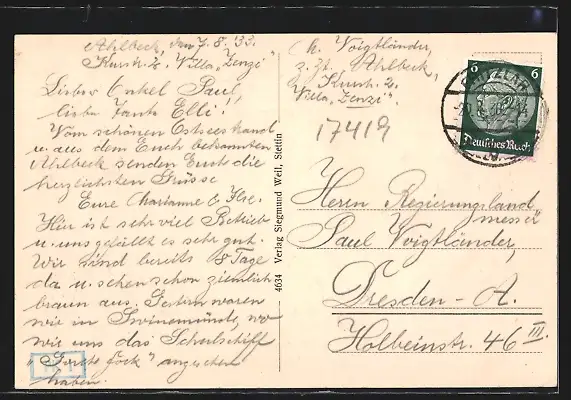 Ahlbeck, den 7.8.33.
Kurstr. 2. Villa „Zenzi"
Lieber Onkel Paul,
liebe Tante Elli!
Vom schönen Ostseestrand
u. aus dem Euch bekannten
Ahlbeck senden Euch die
herzlichsten Grüsse
Eure Marianne & Ilse.
Hier ist sehr viel Betrieb
u. uns gefällt es sehr gut.
Wir sind bereits 8 Tage
da u. sehen schon ziemlich
braun aus. Gestern waren
wir in Swinemünde, wo
wir uns das Schulschiff
„Gorch Fock" angesehen
haben.
4634 Verlag Siegmund Weil, Stettin
Voigtländer,
z. Zt. Ahlbeck,
Kurstr. 2.
Villa „Zenzi".
17419
6 6
Deutsches Reich
Herrn Regierungsland
messer
Paul Voigtländer,
Dresden-A.
Holbeinstr. 46 III.